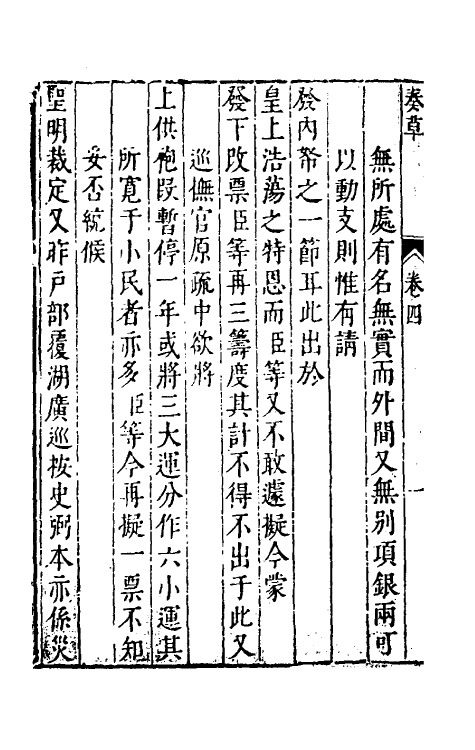 奏草 卷四 一
無所處有名無實而外間又無別項銀兩可
以動支則惟有請
發內帑之一節耳此出於
皇上浩蕩之特恩而臣等又不敢遽擬今蒙
發下改票臣等再三籌度其計不得不出于此又
巡撫官原疏中欲將
上供袍段暫停一年或將三大運分作六小運其
所寬于小民者亦多臣等今再擬一票不知
妥否統候
聖明裁定又昨戶部覆湖廣巡按史弼本亦係災